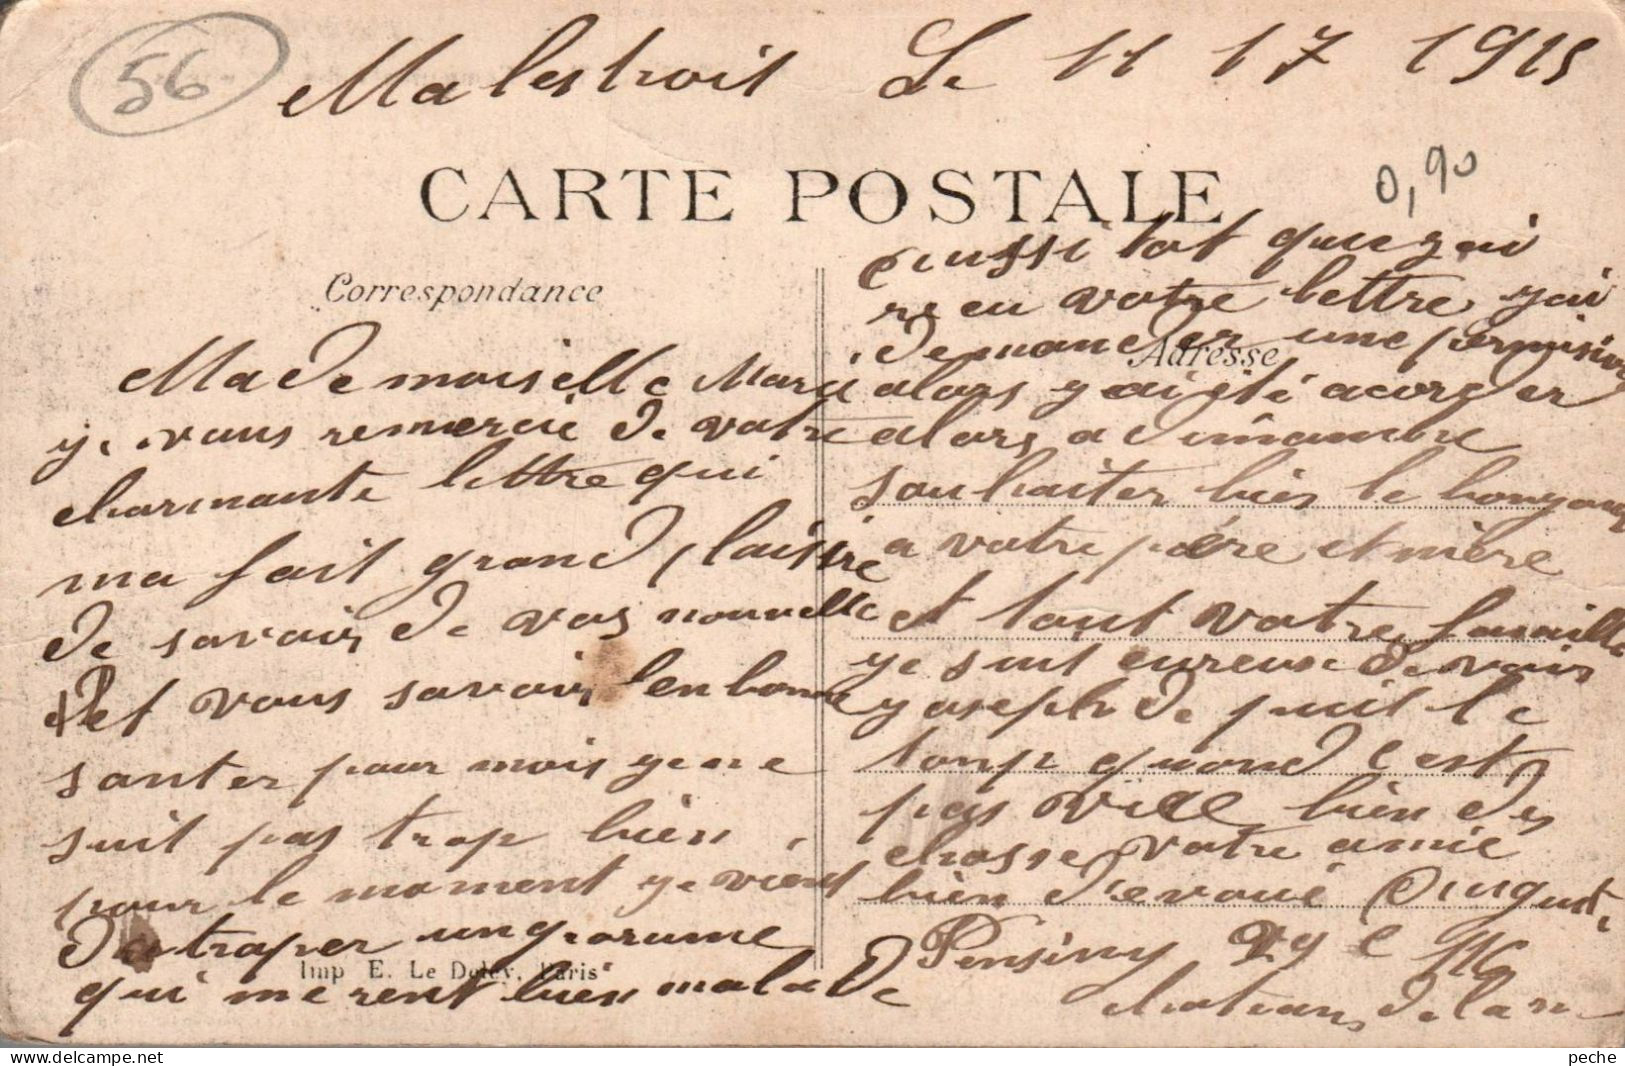 56
Malestroit Le 11 17 1915
0,90
CARTE POSTALE
Correspondance
Adresse
Mademoiselle Mari
ye vous remercie de votre
charmante lettre qui
ma fait grand plaisire
de savoir de vos nouvelle
et vous savoir en bonne
santer pour mois ye ne
suit pas trop bien
pour le moment ye vient
datraper un gro rume
qui me rent bien malade
Imp E. Le Deley, Paris
aussi tot que y ai
reu votre lettre yai
demander une permision
alors y ai été acorder
alors a dimanche
souhaiter bien le bonyour
a votre père et mère
et tout votre famille
ye suit eureuse de voir
yoseph de puit le
temp quand c'est
pas vue bien des
chosse votre amie
bien dévoué August
Pensiny 29 e 116
chateau de la
peche